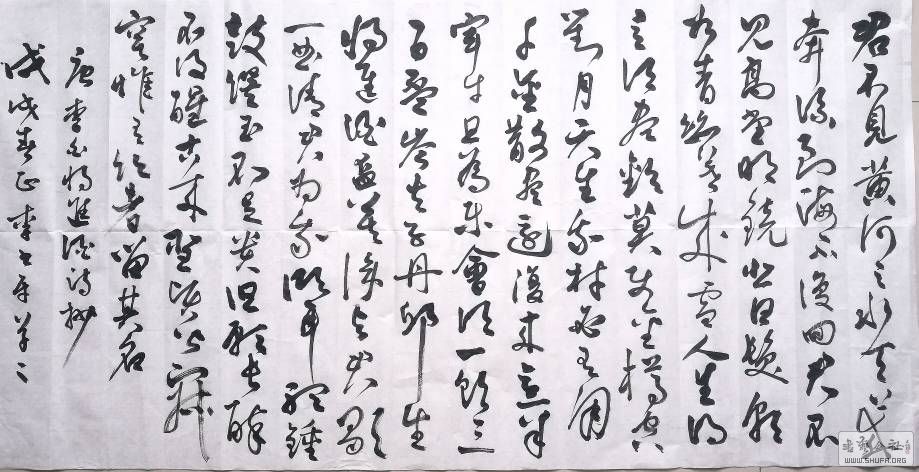 君不見黄河之水天上来
奔流到海不復回君不
見高堂明鏡悲白髮朝
如青絲暮成雪人生得
意須盡歡莫使金樽空
對月天生我材必有用
千金散盡還復来烹羊
宰牛且為樂會須一飲三
百盃岑夫子丹邱生
将進酒盃莫停与君歌
一曲請君为我傾耳聽鐘
鼓饌玉不足貴但願長醉
不復醒古来聖賢皆寂
寞惟有飲者留其名
唐李白将進酒詩抄
戊戌春正
WWW.SHUFA.ORG